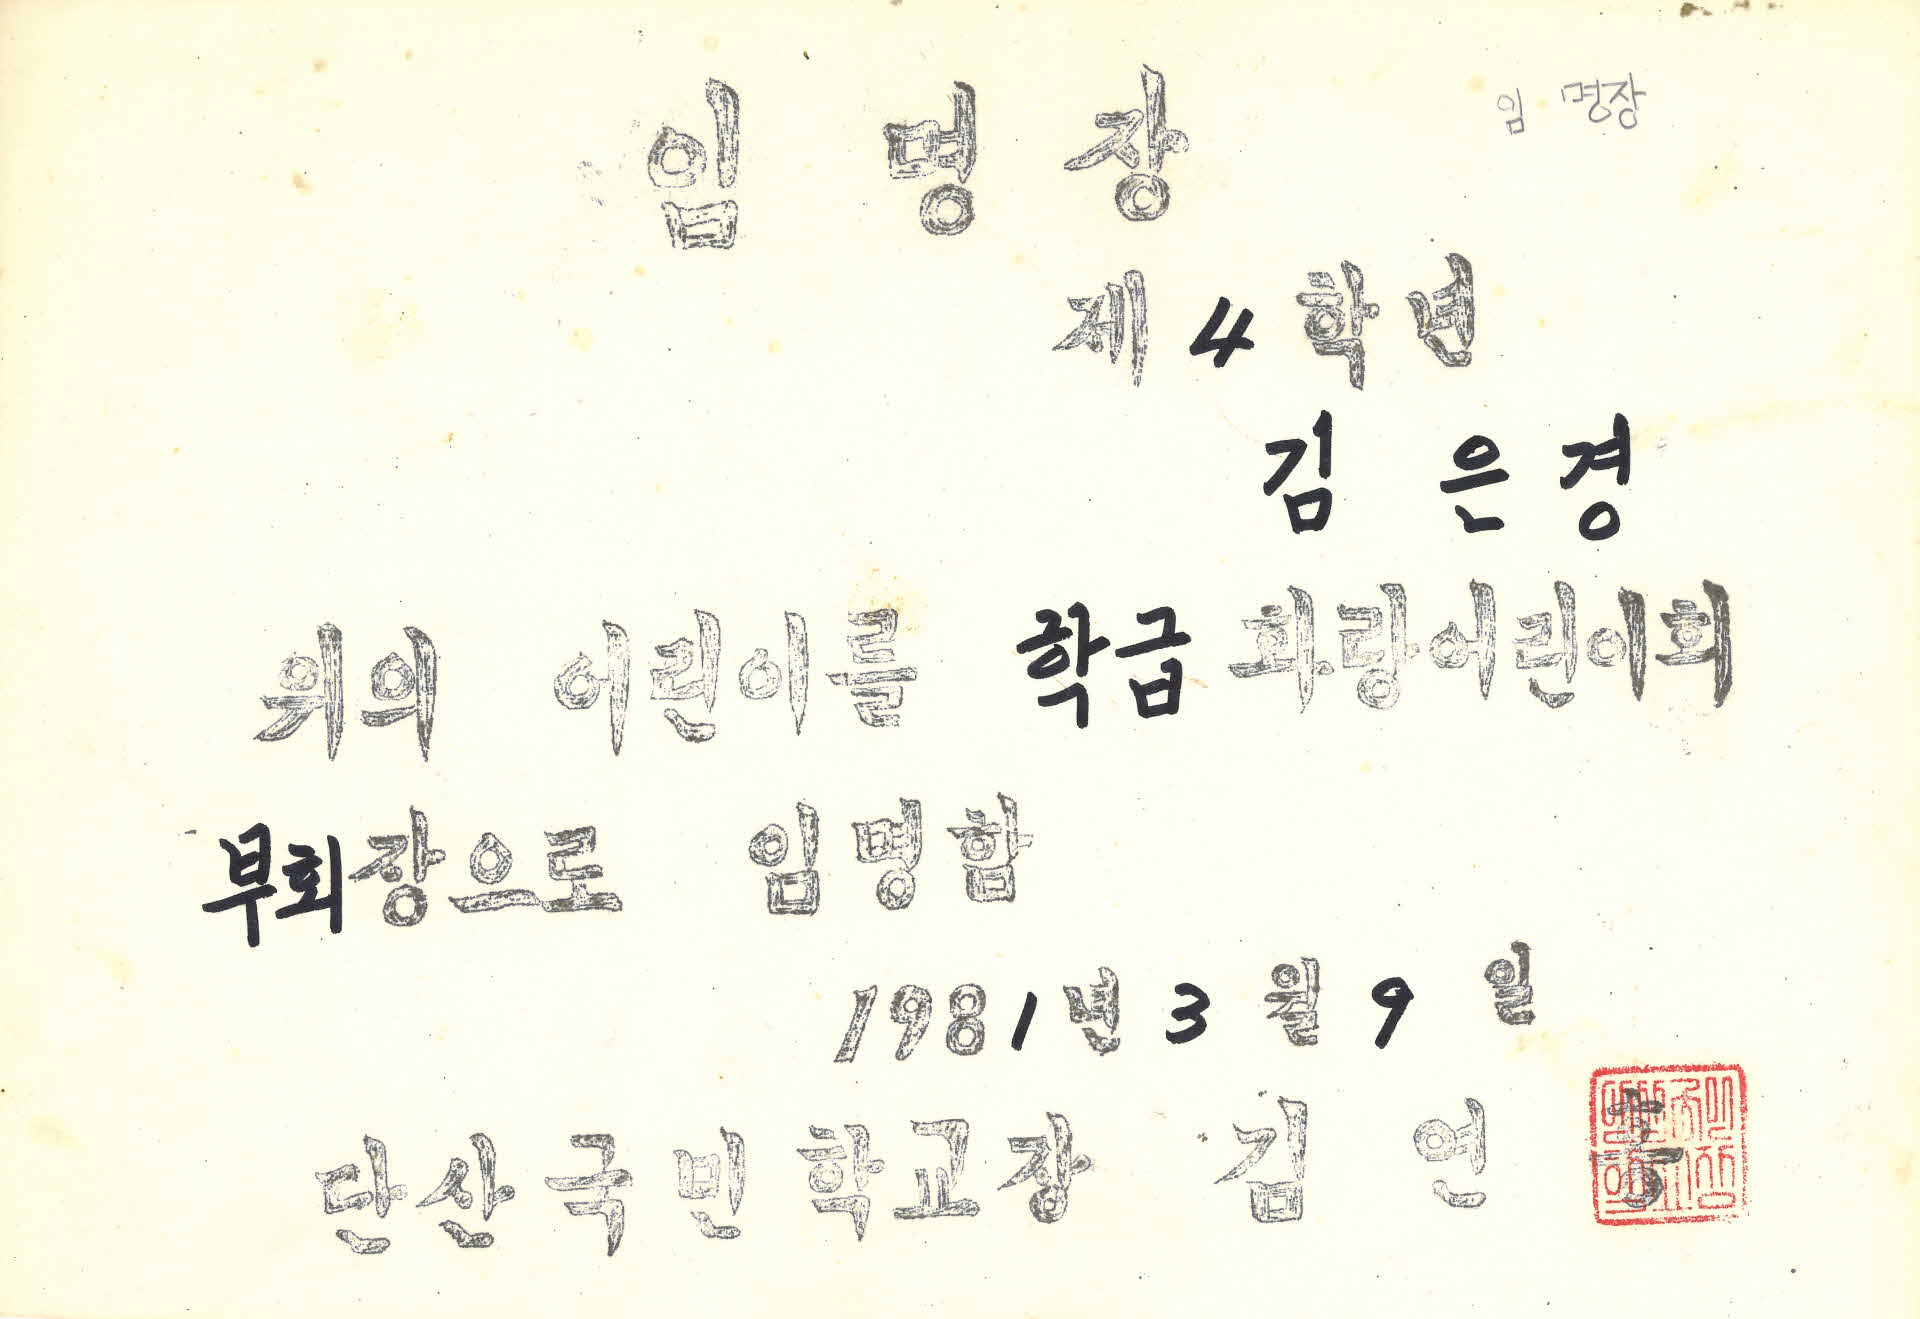 임명장
임 명장
제 4 학년
김 은 경
위의 어린이를 학급 화랑어린이회
부회장으로 임명함
1981년 3월 9일
단산국민학교장 김 연